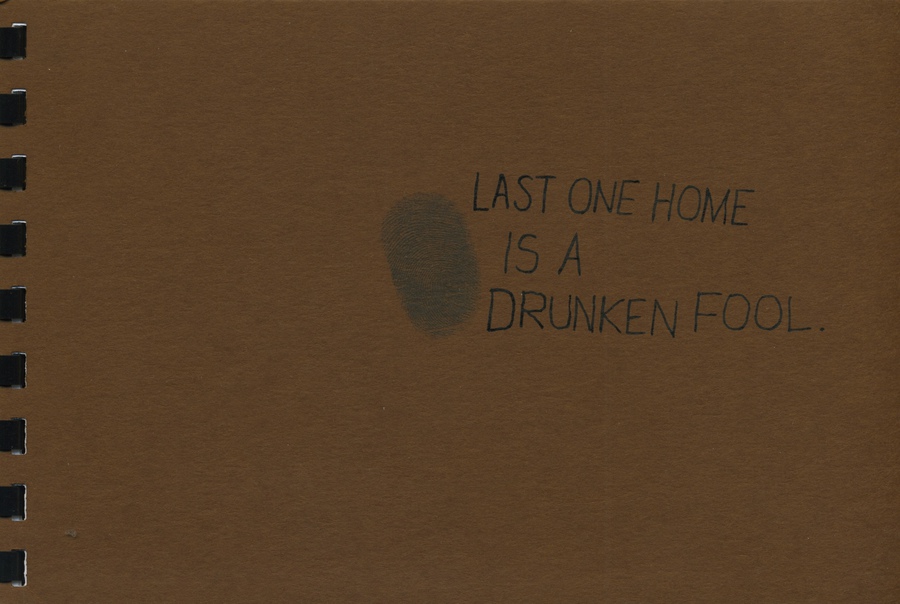 LAST ONE HOME
IS A
DRUNKEN FOOL.